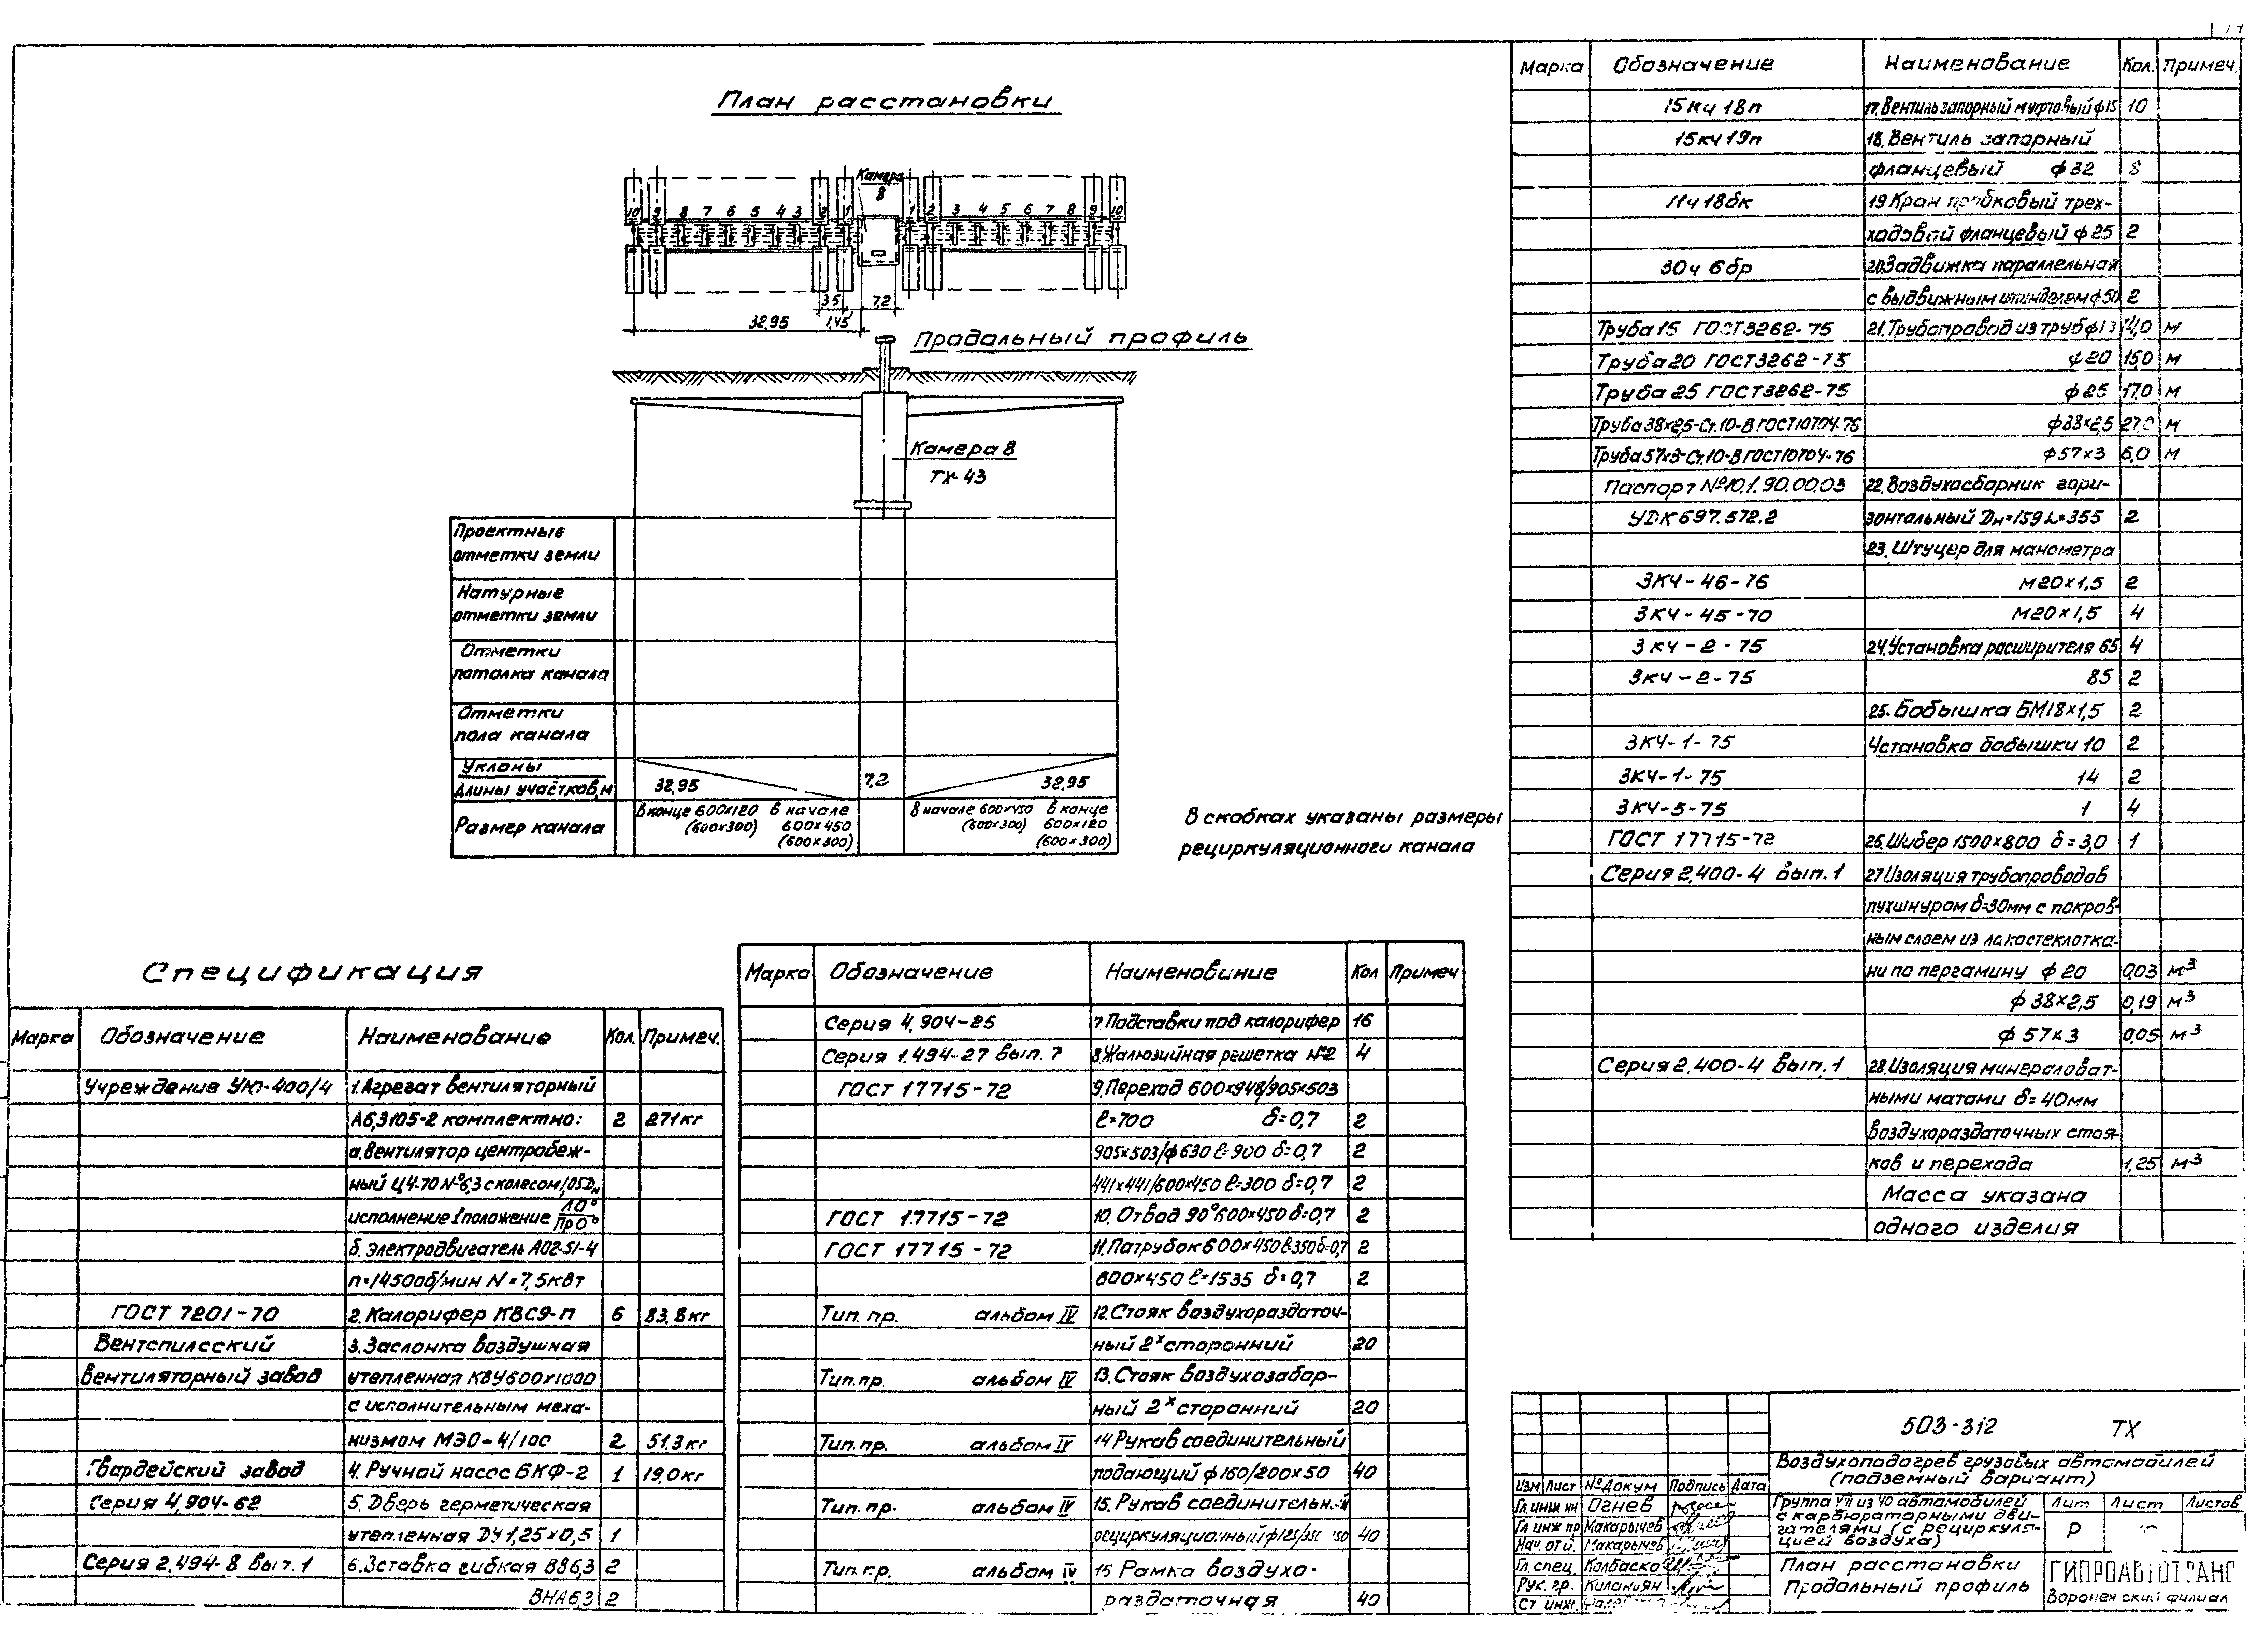 План расстановки
Камера
8
10 9 8 7 6 5 4 3 2 1
1 2 3 4 5 6 7 8 9 10
3,5 7,2
32,95 1,45
Продольный профиль
Камера 8
ТХ-43
Проектные
отметки земли
Натурные
отметки земли
Отметки
потолка канала
Отметки
пола канала
Уклоны
Длины участков, м
32,95 7,2 32,95
Размер канала
в конце 600×120 в начале
(600×300) 600×450
(600×300)
в начале 600×450 в конце
(600×300) 600×120
(600×300)
В скобках указаны размеры
рециркуляционного канала
Спецификация
Марка Обозначение Наименование Кол. Примеч.
Учреждение УЮ-400/4 1. Агрегат вентиляторный
А6,3105-2 комплектно: 2 271кг
а. Вентилятор центробеж-
ный Ц4-70 №6,3 с колесом 1,05Dн
исполнение 1 положение Л0°/Пр0°
б. Электродвигатель АО2-51-4
n=1450об/мин N=7,5кВт
ГОСТ 7201-70 2. Калорифер КВС9-П 6 83.8кг
Вентспилсский 3. Заслонка воздушная
вентиляторный завод утепленная КВУ600×1000
с исполнительным меха-
низмом МЭО-4/100 2 51.3кг
Гвардейский завод 4. Ручной насос БКФ-2 1 19,0кг
Серия 4,904-62 5. Дверь герметическая
утепленная ДУ 1,25×0,5 1
Серия 2.494-8 вып.1 6. Вставка гибкая ВВ6,3 2
ВНА6,3 2
Марка Обозначение Наименование Кол Примеч
Серия 4,904-25 7. Подставки под калорифер 16
Серия 1.494-27 вып. 7 8. Жалюзийная решетка №2 4
ГОСТ 17715-72 9. Переход 600×948/905×503
ℓ=700 δ=0,7 2
905×503/ф630 ℓ=900 δ=0,7 2
441×441/600×450 ℓ=300 δ=0,7 2
ГОСТ 17715-72 10. Отвод 90° 600×450 δ=0,7 2
ГОСТ 17715-72 11. Патрубок 600×450 ℓ=350 δ=0,7 2
600×450 ℓ=1535 δ=0,7 2
Тип. пр. альбом IV 12. Стояк воздухораздаточ-
ный 2х сторонний 20
Тип. пр. альбом IV 13. Стояк воздухозабор-
ный 2х сторонний 20
Тип. пр. альбом IV 14 Рукав соединительный
подающий ф160/200×50 40
Тип. пр. альбом IV 15. Рукав соединительный
рециркуляционный 40
Тип. пр. альбом IV 16 Рамка воздухо-
раздаточная 40
Марка Обозначение Наименование Кол. Примеч.
15кч 18п 17. Вентиль запорный муфтовый ф15 10
15кч 19п 18. Вентиль запорный
фланцевый ф32 8
11ч 18бк 19 Кран пробковый трех-
ходовой фланцевый ф25 2
30ч 6бр 20. Задвижка параллельная
с выдвижным шпинделем ф50 2
Труба 15 ГОСТ 3262-75 21. Трубопровод из труб м
Труба 20 ГОСТ 3262-75 ф20 15,0 м
Труба 25 ГОСТ 3262-75 ф25 17.0 м
Труба 38×2,5-Ст.10-В ГОСТ 10704-76 ф38×2,5 27.0 м
Труба 57×3-Ст.10-В ГОСТ 10704-76 ф57×3 6,0 м
Паспорт №10.1.90.00.03 22. Воздухосборник гори-
УДК 697.572.2 зонтальный Dн=159 L=355 2
23. Штуцер для манометра
ЗКЧ-46-76 М20×1,5 2
ЗКЧ-45-70 М20×1,5 4
ЗКЧ-2-75 24. Установка расширителя 65 4
ЗКЧ-2-75 85 2
25. Бобышка БМ18×1,5 2
ЗКЧ-1-75 Установка бобышки 10 2
ЗКЧ-1-75 14 2
ЗКЧ-5-75 1 4
ГОСТ 17715-72 26. Шибер 1500×800 δ=3,0 1
Серия 2.400-4 вып.1 27 Изоляция трубопроводов
пухшнуром δ=30мм с покров-
ным слоем из лакостеклотка-
ни по пергамину ф20 0,03 м³
ф38×2,5 0,19 м³
ф57×3 0,05 м³
Серия 2.400-4 вып.1 28. Изоляция минераловат-
ными матами δ=40мм
воздухораздаточных стоя-
ков и перехода 1,25 м³
Масса указана
одного изделия
503-312 ТХ
Воздухоподогрев грузовых автомобилей
(подземный вариант)
Изм Лист № Докум Подпись Дата
Гл. инж ин Огнев
Гл инж пр Макарычев
Нач. отд. Макарычев
Гл. спец. Колбаско
Рук. гр. Килаконян
Ст инж.
Группа VII из 40 автомобилей
с карбюраторными дви-
гателями (с рециркуля-
цией воздуха)
Лит Лист Листов
Р
План расстановки
Продольный профиль
ГИПРОАВТОТРАНС
Воронежский филиал